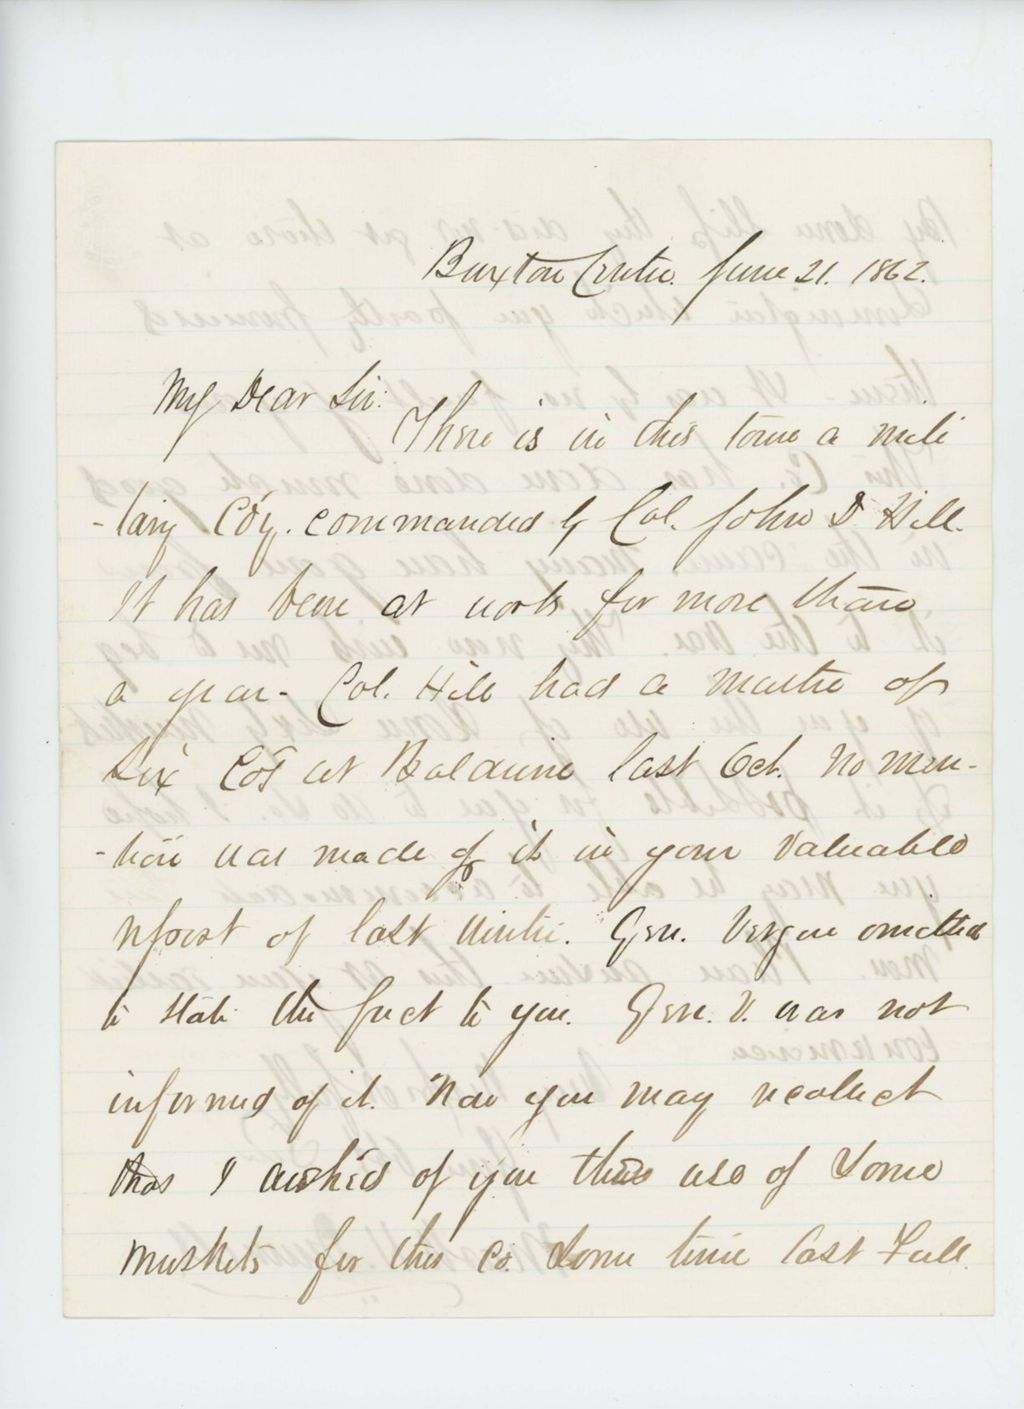 Buxton Centre. June 21. 1862.
My Dear Sir:
There is in this town a mili
-tary Coy. commanded by Col. John D. Hill.
It has been at work for more than
a year - Col. Hill had a muster of
Six Co's at Baldwin last Oct. No men-
-tion was made of it in your valuable
report of last winter. Gen. Virgin omitted
to state the fact to you. Gen. V. was not
informed of it. Now you may recollect
that I asked of you the use of some
muskets for this Co. some time last Fall.